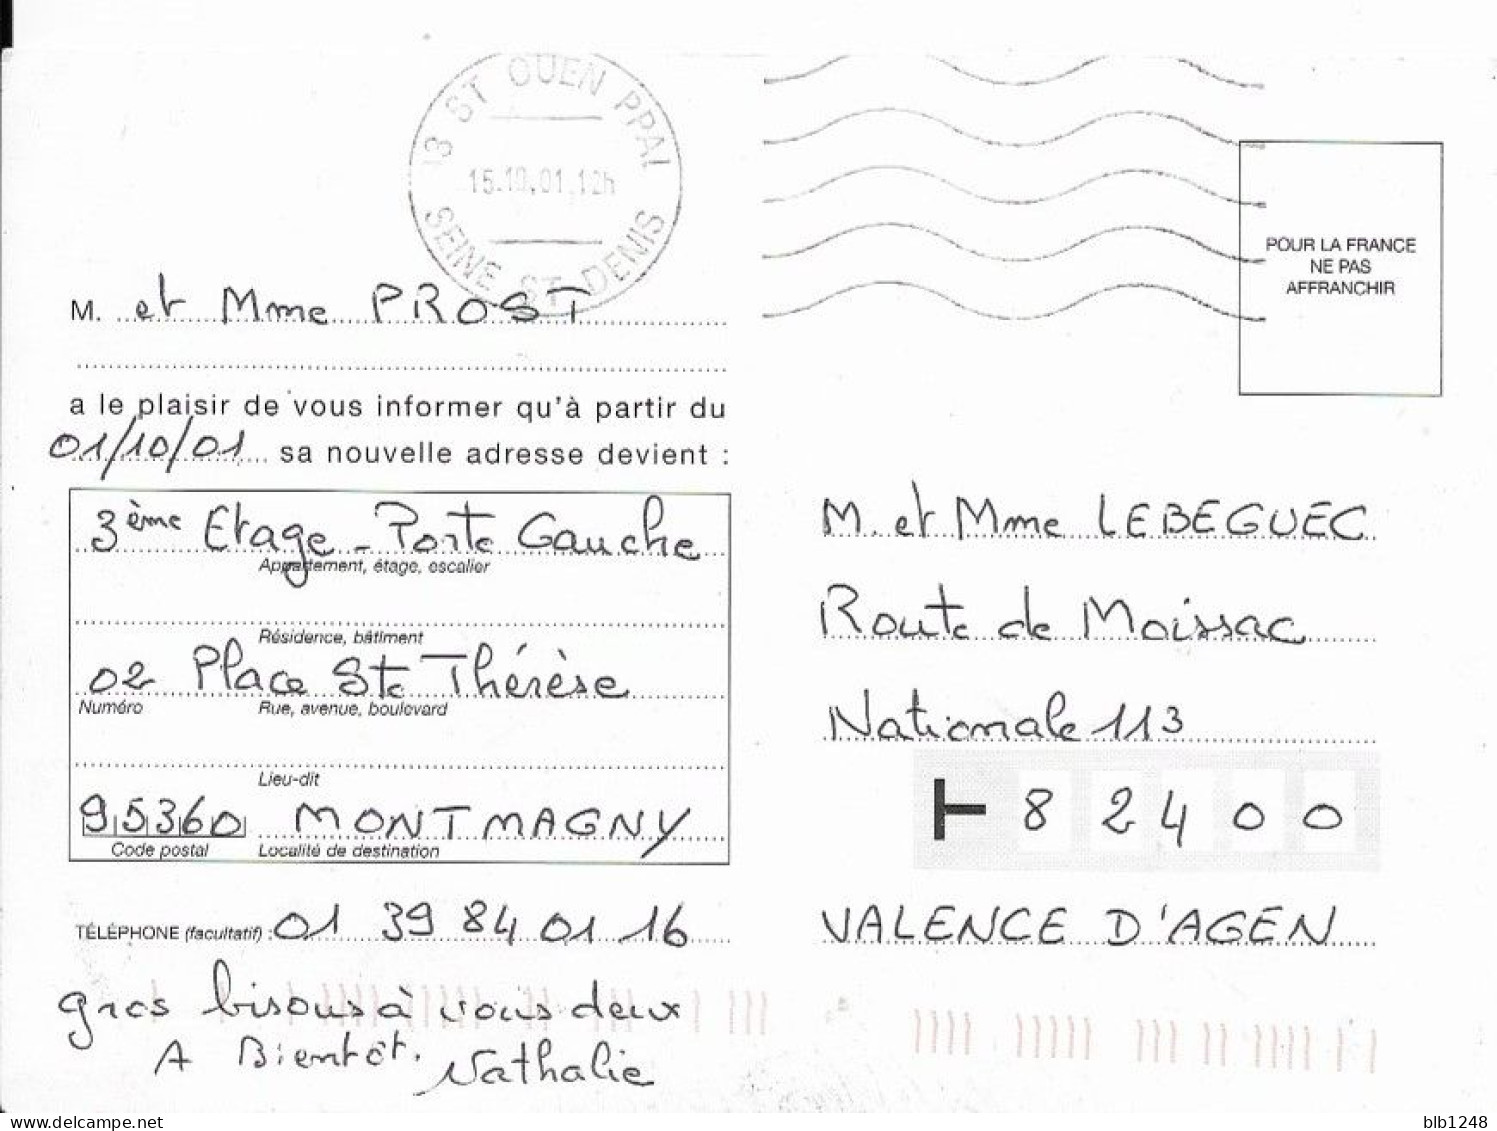 13 ST OUEN PPAL
15.10.01.12h
SEINE ST DENIS
POUR LA FRANCE
NE PAS
AFFRANCHIR
M. et Mme PROST
a le plaisir de vous informer qu'à partir du
01/10/01 sa nouvelle adresse devient :
3ème Etage - Porte Gauche
Appartement, étage, escalier
Résidence, bâtiment
02 Place Ste Thérèse
Numéro Rue, avenue, boulevard
Lieu-dit
95360 MONTMAGNY
Code postal Localité de destination
TÉLÉPHONE (facultatif) : 01 39 84 01 16
gros bisous à vous deux
A Bientôt. Nathalie
M. et Mme LEBEGUEC
Route de Moissac
Nationale 113
82400
VALENCE D'AGEN
delcampe.net
blb1248